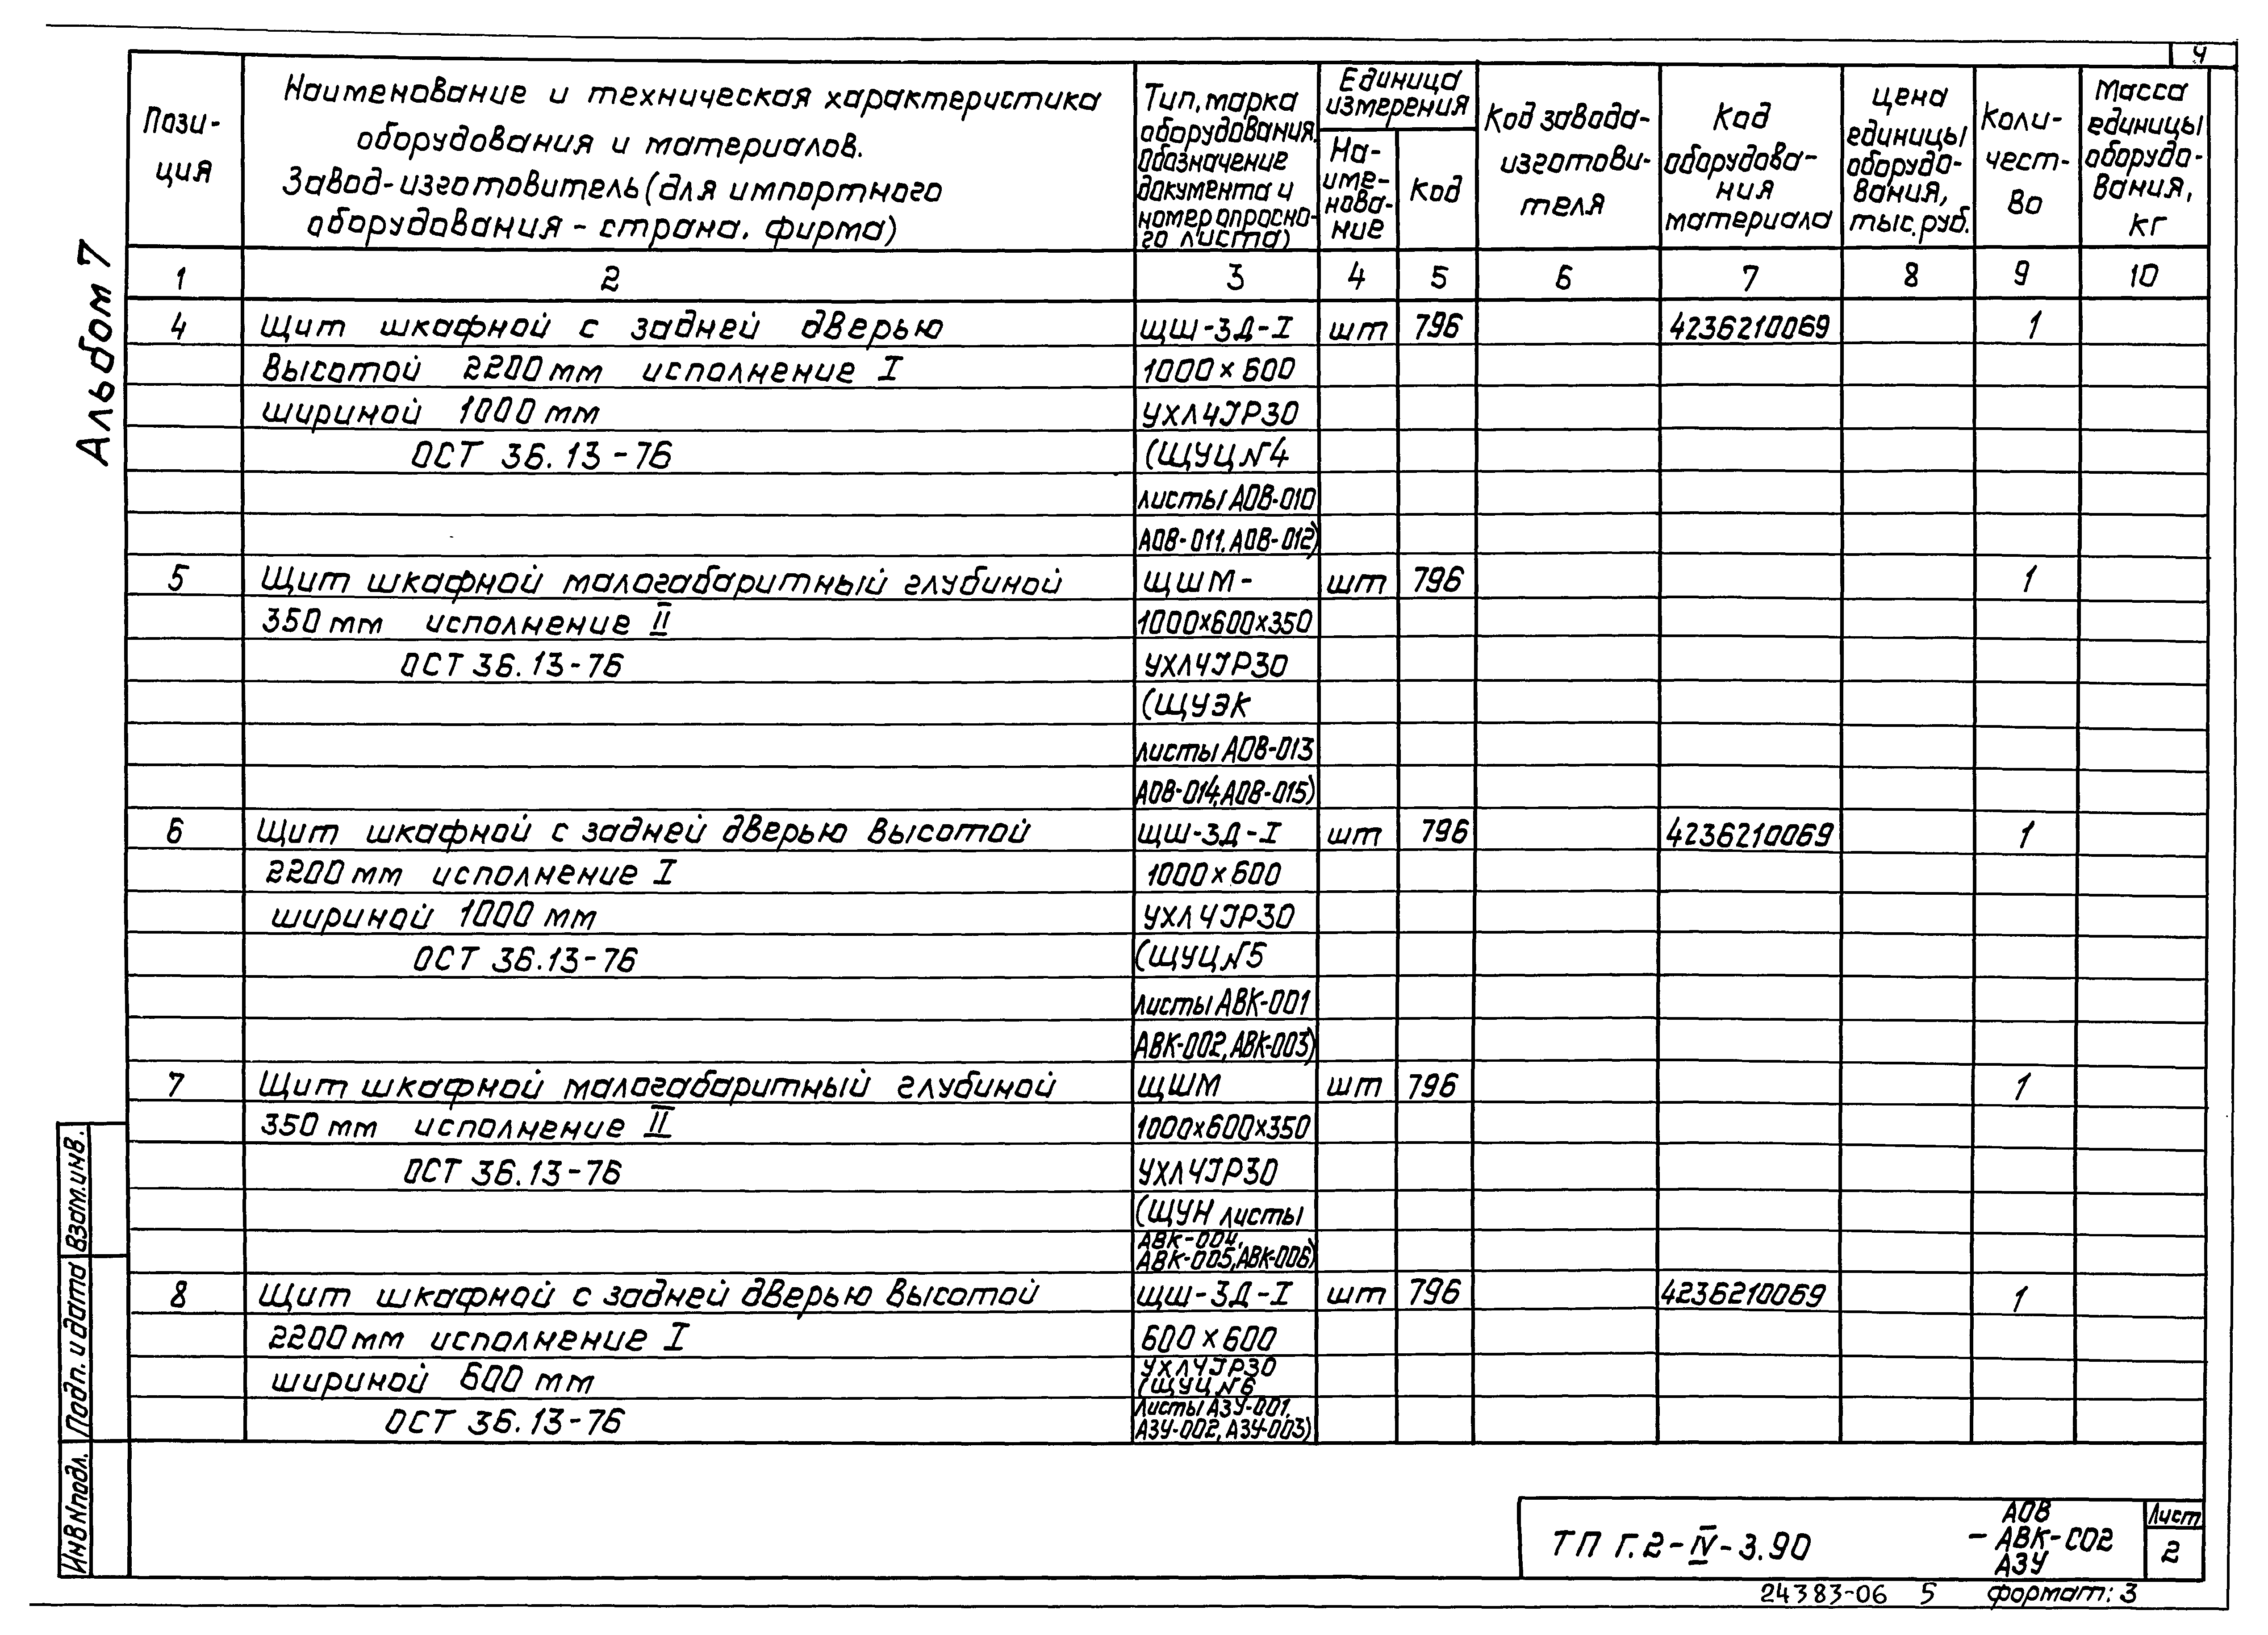 4
Альбом 7
Пози-
ция
Наименование и техническая характеристика
оборудования и материалов.
Завод-изготовитель (для импортного
оборудования - страна, фирма)
Тип, марка
оборудования.
Обозначение
документа и
номер опросно-
го листа)
Единица
измерения
На-
име-
нова-
ние
Код
Код завода-
изготови-
теля
Код
оборудова-
ния
материала
цена
единицы
оборудо-
вания,
тыс. руб.
Коли-
чест-
во
Масса
единицы
оборудо-
вания,
кг
1 2 3 4 5 6 7 8 9 10
4 Щит шкафной с задней дверью ЩШ-ЗД-I шт 796 4236210069 1
высотой 2200 мм исполнение I 1000×600
шириной 1000 мм УХЛ4IP30
ОСТ 36.13-76 (ЩУЦN4
листы АОВ-010
АОВ-011, АОВ-012)
5 Щит шкафной малогабаритный глубиной ЩШМ- шт 796 1
350 мм исполнение II 1000×600×350
ОСТ 36.13-76 УХЛ4IP30
(ЩУЭК
листы АОВ-013
АОВ-014, АОВ-015)
6 Щит шкафной с задней дверью высотой ЩШ-ЗД-I шт 796 4236210069 1
2200 мм исполнение I 1000×600
шириной 1000 мм УХЛ4IP30
ОСТ 36.13-76 (ЩУЦN5
листы АВК-001
АВК-002, АВК-003)
7 Щит шкафной малогабаритный глубиной ЩШМ шт 796 1
350 мм исполнение II 1000×600×350
ОСТ 36.13-76 УХЛ4IP30
(ЩУН листы
АВК-004,
АВК-005, АВК-006)
8 Щит шкафной с задней дверью высотой ЩШ-ЗД-I шт 796 4236210069 1
2200 мм исполнение I 600×600
шириной 600 мм УХЛ4IP30
(ЩУЦN6
ОСТ 36.13-76 Листы АЗУ-001,
АЗУ-002, АЗУ-003)
Взам.инв.
Подп. и дата
Инв N подл.
ТП Г.2-IV-3.90
АОВ
- АВК-СО2
АЗУ
Лист
2
24383-06 5 формат: 3